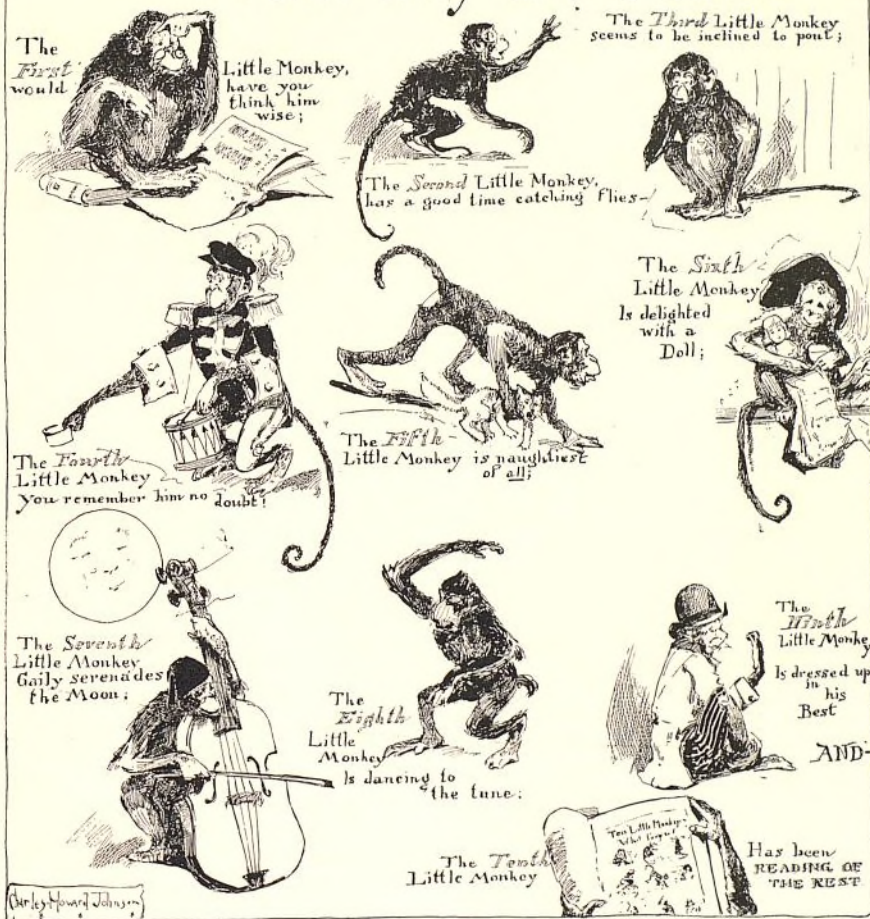 The
First
would
Little Monkey,
have you
think him
wise;
The Second Little Monkey,
has a good time catching flies-
The Third Little Monkey
seems to be inclined to pout;
The Fourth
Little Monkey
you remember him no doubt!
The Fifth-
Little Monkey is naughtiest
of all;
The Sixth
Little Monkey
Is delighted
with a
Doll;
The Seventh
Little Monkey
Gaily serenades
the Moon;
The
Eighth
Little
Monkey
Is dancing to
the tune;
The
Ninth
Little Monke
Is dressed up
in
his
Best
AND-
The Tenth
Little Monkey
Ten Little Monkeys
Has been
READING OF
THE REST
Charles Howard Johnson